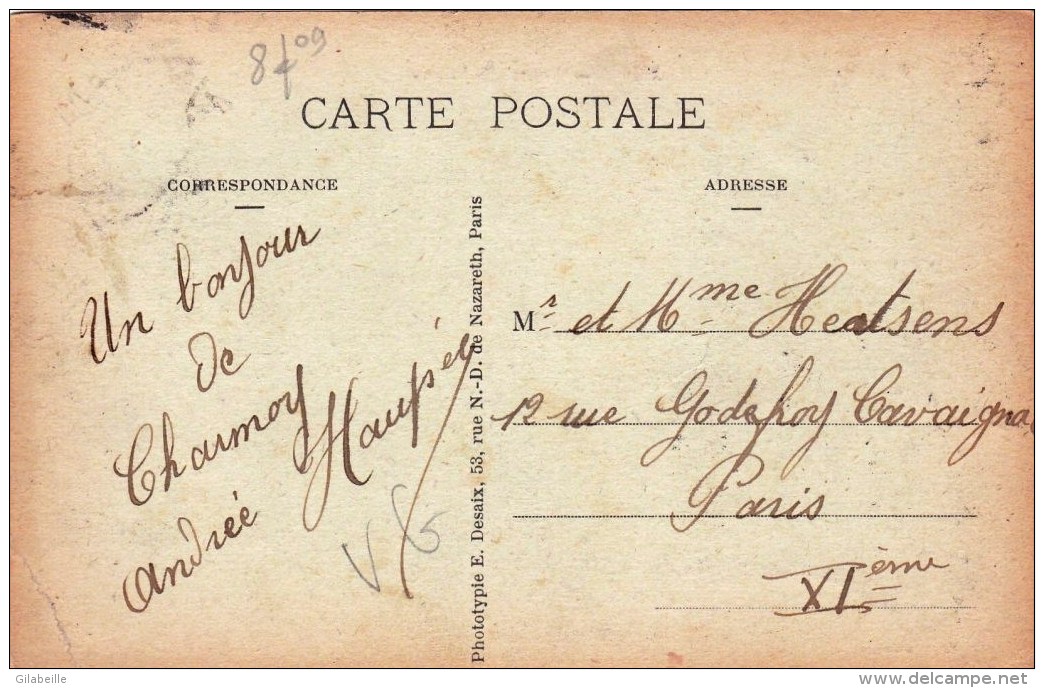 CARTE POSTALE
CORRESPONDANCE
ADRESSE
Un bonjour
de
Charmoy
Andrée
Phototypie E. Desaix, 53, rue N.-D. de Nazareth, Paris
Mr et Mme Heutsens
12 rue Godefroy Cavaignac
Paris
XIème
Gilabeille
www.delcampe.net